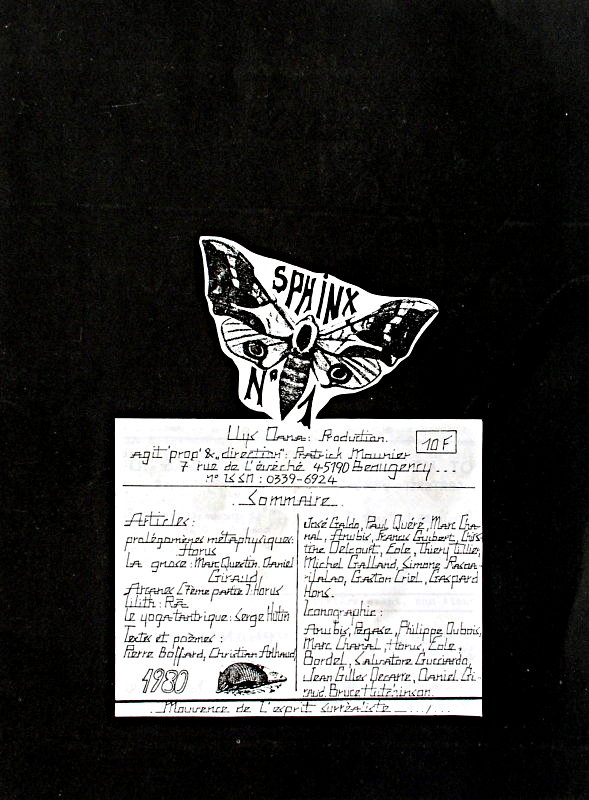 SPHINX
N° 1
Llys Dana: Production.
10F
agit'prop' & "direction": Patrick Mounier
7 rue de L'évêché 45190 Beaugency...
n° ISSN: 0339-6924
Sommaire.
Articles:
prolégomènes métaphysiques:
Horus
La gnose: Marc Questin, Daniel
Giraud
Arcanes (7ème partie): Horus
Lilith: Râ
Le yoga tantrique: Serge Hutin
Textes et poèmes:
Pierre Boffard, Christian Arthaud
José Galdo, Paul Quéré, Marc Cha-
nal, Anubis, Francis Guibert, Chris-
tine Delcourt, Eole, Thierry Tillier,
Michel Galland, Simone
Gaston Criel, Gaspard
Hons.
Iconographie:
Anubis, Pégase, Philippe Dubois,
Marc Chanal, Horus, Eole,
Bordel, Salvatore Gucciardo,
Jean Gilles Decarre, Daniel Gi-
raud, Bruce Hutchinson.
1980
Mouvence de L'esprit surréaliste ..../...